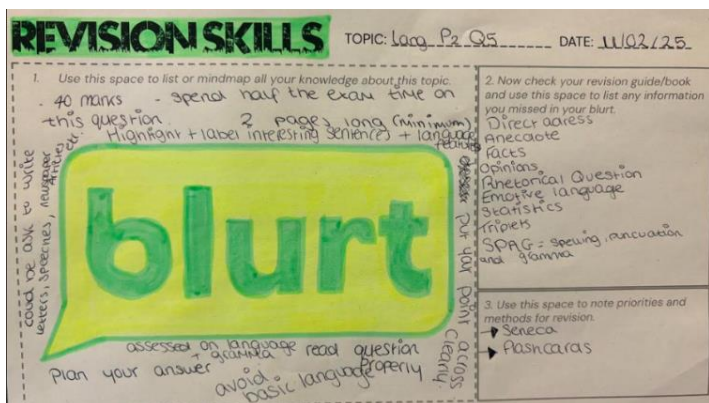 REVISION SKILLS
TOPIC: Lang P2 Q5
DATE: 11/02/25
1. Use this space to list or mindmap all your knowledge about this topic.
. 40 marks - spend half the exam time on
this question. 2 pages long (minimum)
Highlight + label interesting sentences + language
features
could be ask to write
letters, speeches, newspaper
Articles
etc.
blurt
put your point across
clearly.
assessed on language
+ gramma
read question
properly
Plan your answer
avoid
basic language
2. Now check your revision guide/book
and use this space to list any information
you missed in your blurt.
Direct adress
Anecdote
Facts
Opinions
Rhetorical Question
Emotive language
Statistics
Triplets
SPAG = spelling, puncuation
and gramma
3. Use this space to note priorities and
methods for revision.
Seneca
Flashcards